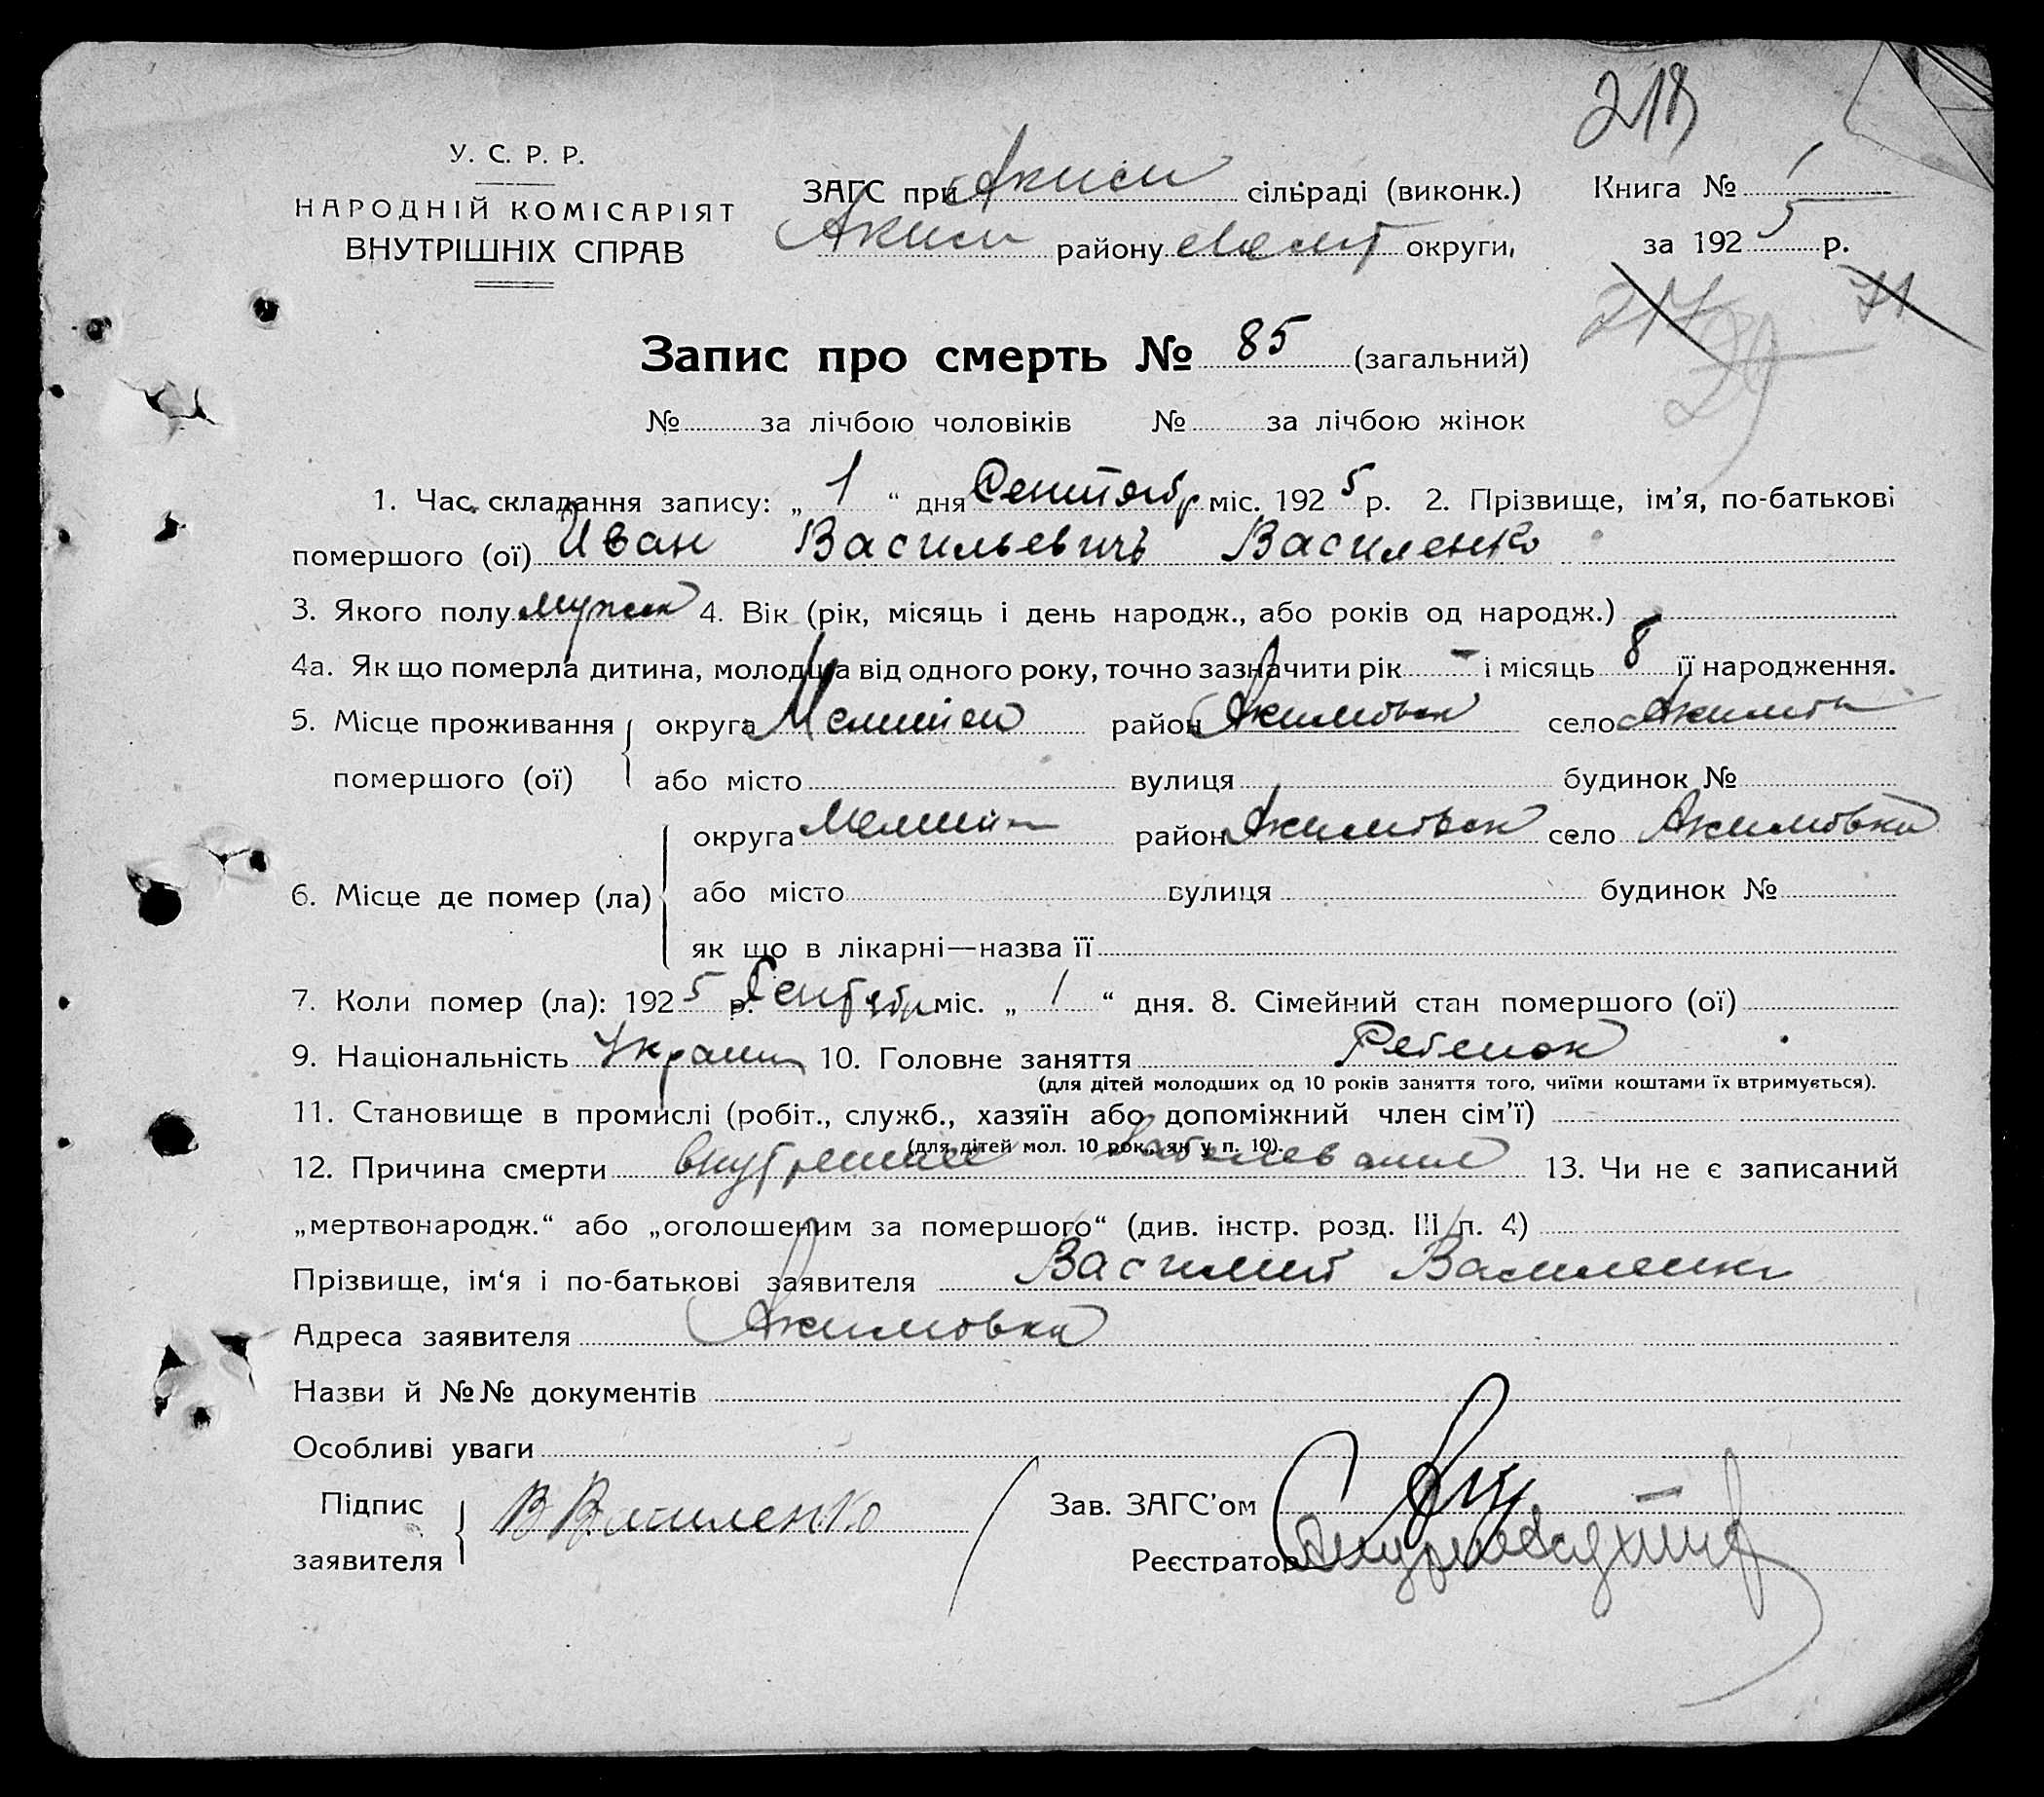 218
У. С. Р. Р.
НАРОДНІЙ КОМІСАРІЯТ
ВНУТРІШНІХ СПРАВ
ЗАГС при Акиси сільраді (виконк.)
Акиси району Мелит округи,
Книга № 1
за 1925 р.
217 71
Запис про смерть № 85 (загальний)
№ за лічбою чоловіків № за лічбою жінок
1. Час складання запису: „ 1 “ дня Сентябр міс. 1925 р. 2. Прізвище, ім’я, по-батькові
помершого (ої) Иван Васильевичъ Василенко
3. Якого полу мужск 4. Вік (рік, місяць і день народж., або років од народж.)
4а. Як що померла дитина, молодша від одного року, точно зазначити рік – і місяць 8 її народження.
5. Місце проживання округа Мелитоп район Акимовск село Акимов
помершого (ої) або місто вулиця будинок №
округа Мелитоп район Акимовск село Акимовка
6. Місце де помер (ла) або місто вулиця будинок №
як що в лікарні—назва її
7. Коли помер (ла): 1925 р. Сентябр міс. „ 1 “ дня. 8. Сімейний стан помершого (ої)
9. Національність Украин 10. Головне заняття Ребенок
(для дітей молодших од 10 років заняття того, чиїми коштами їх втримується).
11. Становище в промислі (робіт., служб., хазяїн або допоміжний член сім’ї)
(для дітей мол. 10 рок., як у п. 10).
12. Причина смерти внутренние заболевания 13. Чи не є записаний
„мертвонародж.“ або „оголошеним за помершого“ (див. інстр. розд. III п. 4)
Прізвище, ім‘я і по-батькові заявителя Василий Василенко
Адреса заявителя Акимовка
Назви й №№ документів
Особливі уваги
Підпис
заявителя В Василенко
Зав. ЗАГС’ом
Реєстратор